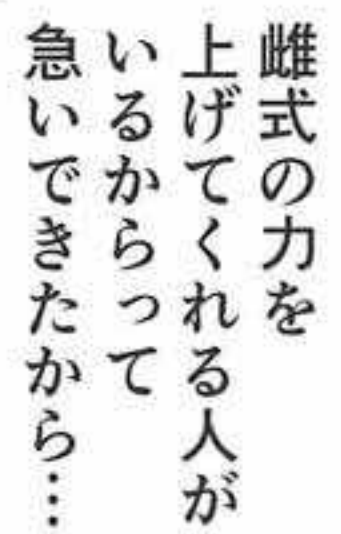 雌式の力を
上げてくれる人が
いるからって
急いできたから…